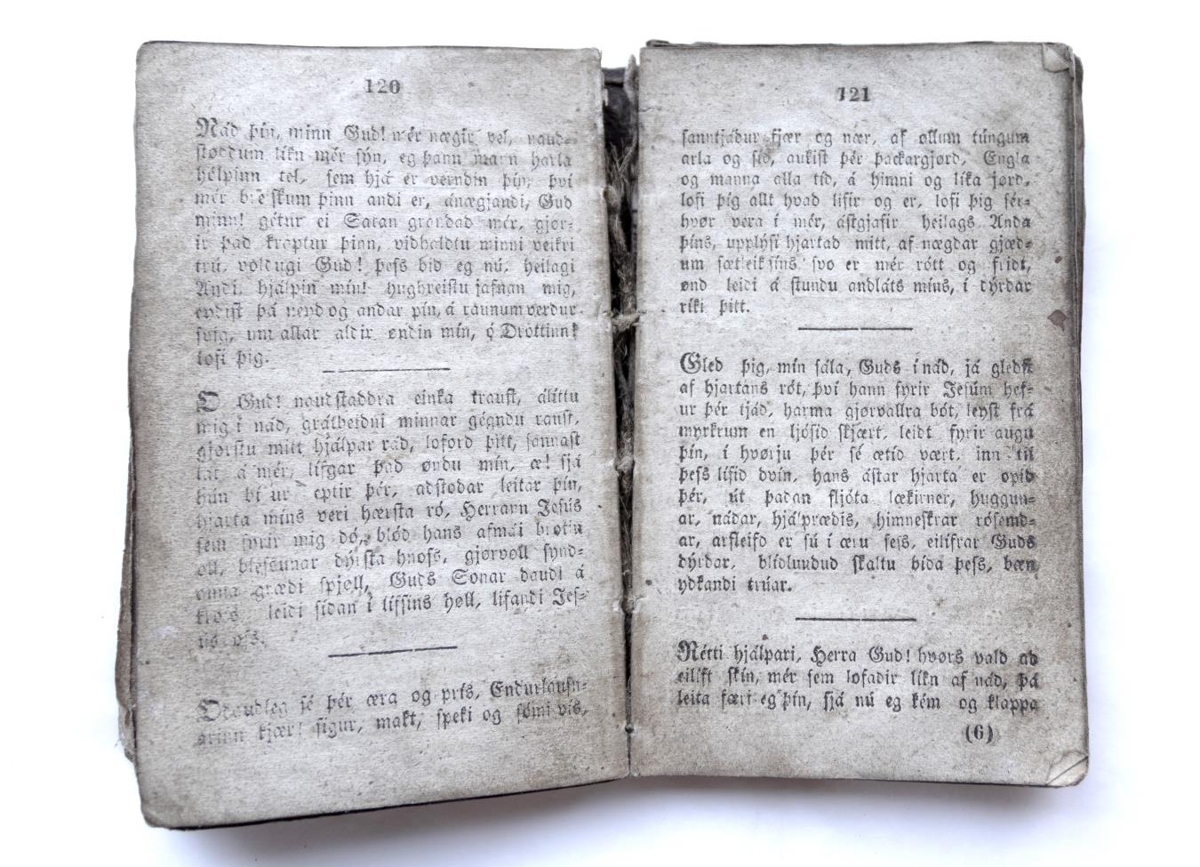 120
Náð þín, minn Guð! mér nægir vel, nauð-
stöddum líkn mér sýn, eg þann mann harla
hólpinn tel, sem hjá er verndin þín, því
mér breiskum þinn andi er, ánægjandi, Guð
minn! gétur ei Satan grandað mér, gjør-
ir það kraptur þinn, viðhaldtu minni veikri
trú, voldugi Guð! þess bið eg nú, heilagi
Andi, hjálpin mín! hughreistu jafnan mig,
og andar pín, á raunum verður
um allar aldir øndin mín, ó Drottinn!
lofi þig.
O Guð! nauðstaddra einka traust, álíttu
mig í náð, grátbeiðni minnar gégndu raust,
gjørstu mitt hjálpar ráð, loforð þitt, sannast
lát á mér, lífgar það øndu mín, æ! sjá
hún eptir þér, aðstoðar leitar þín,
hjarta míns veri hærsta ró, Herrann Jesús
sem fyrir mig dó, blóð hans afmái brotin
øll, blessunar dýrsta hnoss, gjørvøll synd-
anna græði spjøll, Guðs Sonar dauði á
kross leiði síðan í lífsins høll, lifandi Jes-
ús oss.
Ódauðleg sé þér æra og prís, Endurlausn-
arinn kjær! sigur, makt, speki og sómi vís,
121
sanntjáður fjær og nær, af øllum túngum
arla og síð, aukist þér þackargjørð, Engla
og manna alla tíð, á himni og líka jørð,
lofi þig allt hvað lifir og er, lofi þig sér-
hvør vera í mér, ástgjafir heilags Anda
þíns, upplýsi hjartað mitt, af nægdar gjæð-
um sætleiksins svo er mér rótt og frítt,
ønd leiði á stundu andláts míns, í dýrðar
ríki þitt.
Gleð þig, mín sála, Guðs í náð, já gleðst
af hjartans rót, því hann fyrir Jesúm hef-
ur þér tjáð, harma gjørvallra bót, leyst frá
myrkrum en ljósið skjært, leidt fyrir augu
þín, í hvørju þér sé ætíð vært, inn til
þess lífið dvín, hans ástar hjarta er opið
þér, út þaðan fljóta lækirner, huggun-
ar, náðar, hjálpræðis, himneskrar rósemd-
ar, arfleifð er sú í æru sess, eilífrar Guðs
dýrðar, blíðlunduð skaltu bíða þess, bæn
yðkandi trúar.
Rétti hjálpari, Herra Guð! hvørs vald að
eilíft skín, mér sem lofaðir líkn af náð, þá
leita færi eg þín, sjá nú eg kém og klappa
(6)